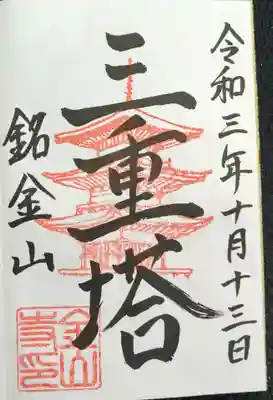 令和三年十月十三日
三重塔
銘金山
金山寺印